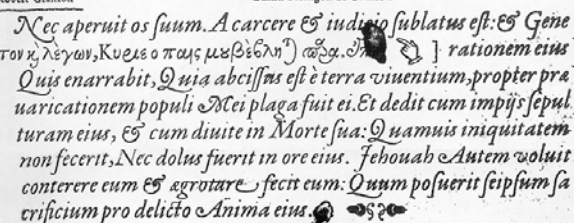 Nec aperuit os ſuum. A carcere & iudicio ſublatus eſt: & Gene
τον κ λέγων, Κυριε ο παις μου βέβλη ] rationem eius
Quis enarrabit, Quia abciſſus eſt è terra viuentium, propter præ
uaricationem populi Mei plaga fuit ei. Et dedit cum impijs ſepul
turam eius, & cum diuite in Morte ſua: Quamuis iniquitatem
non fecerit, Nec dolus fuerit in ore eius. Jehouah Autem voluit
conterere eum & ægrotare fecit eum: Quum poſuerit ſeipſum ſa
crificium pro delicto Anima eius.